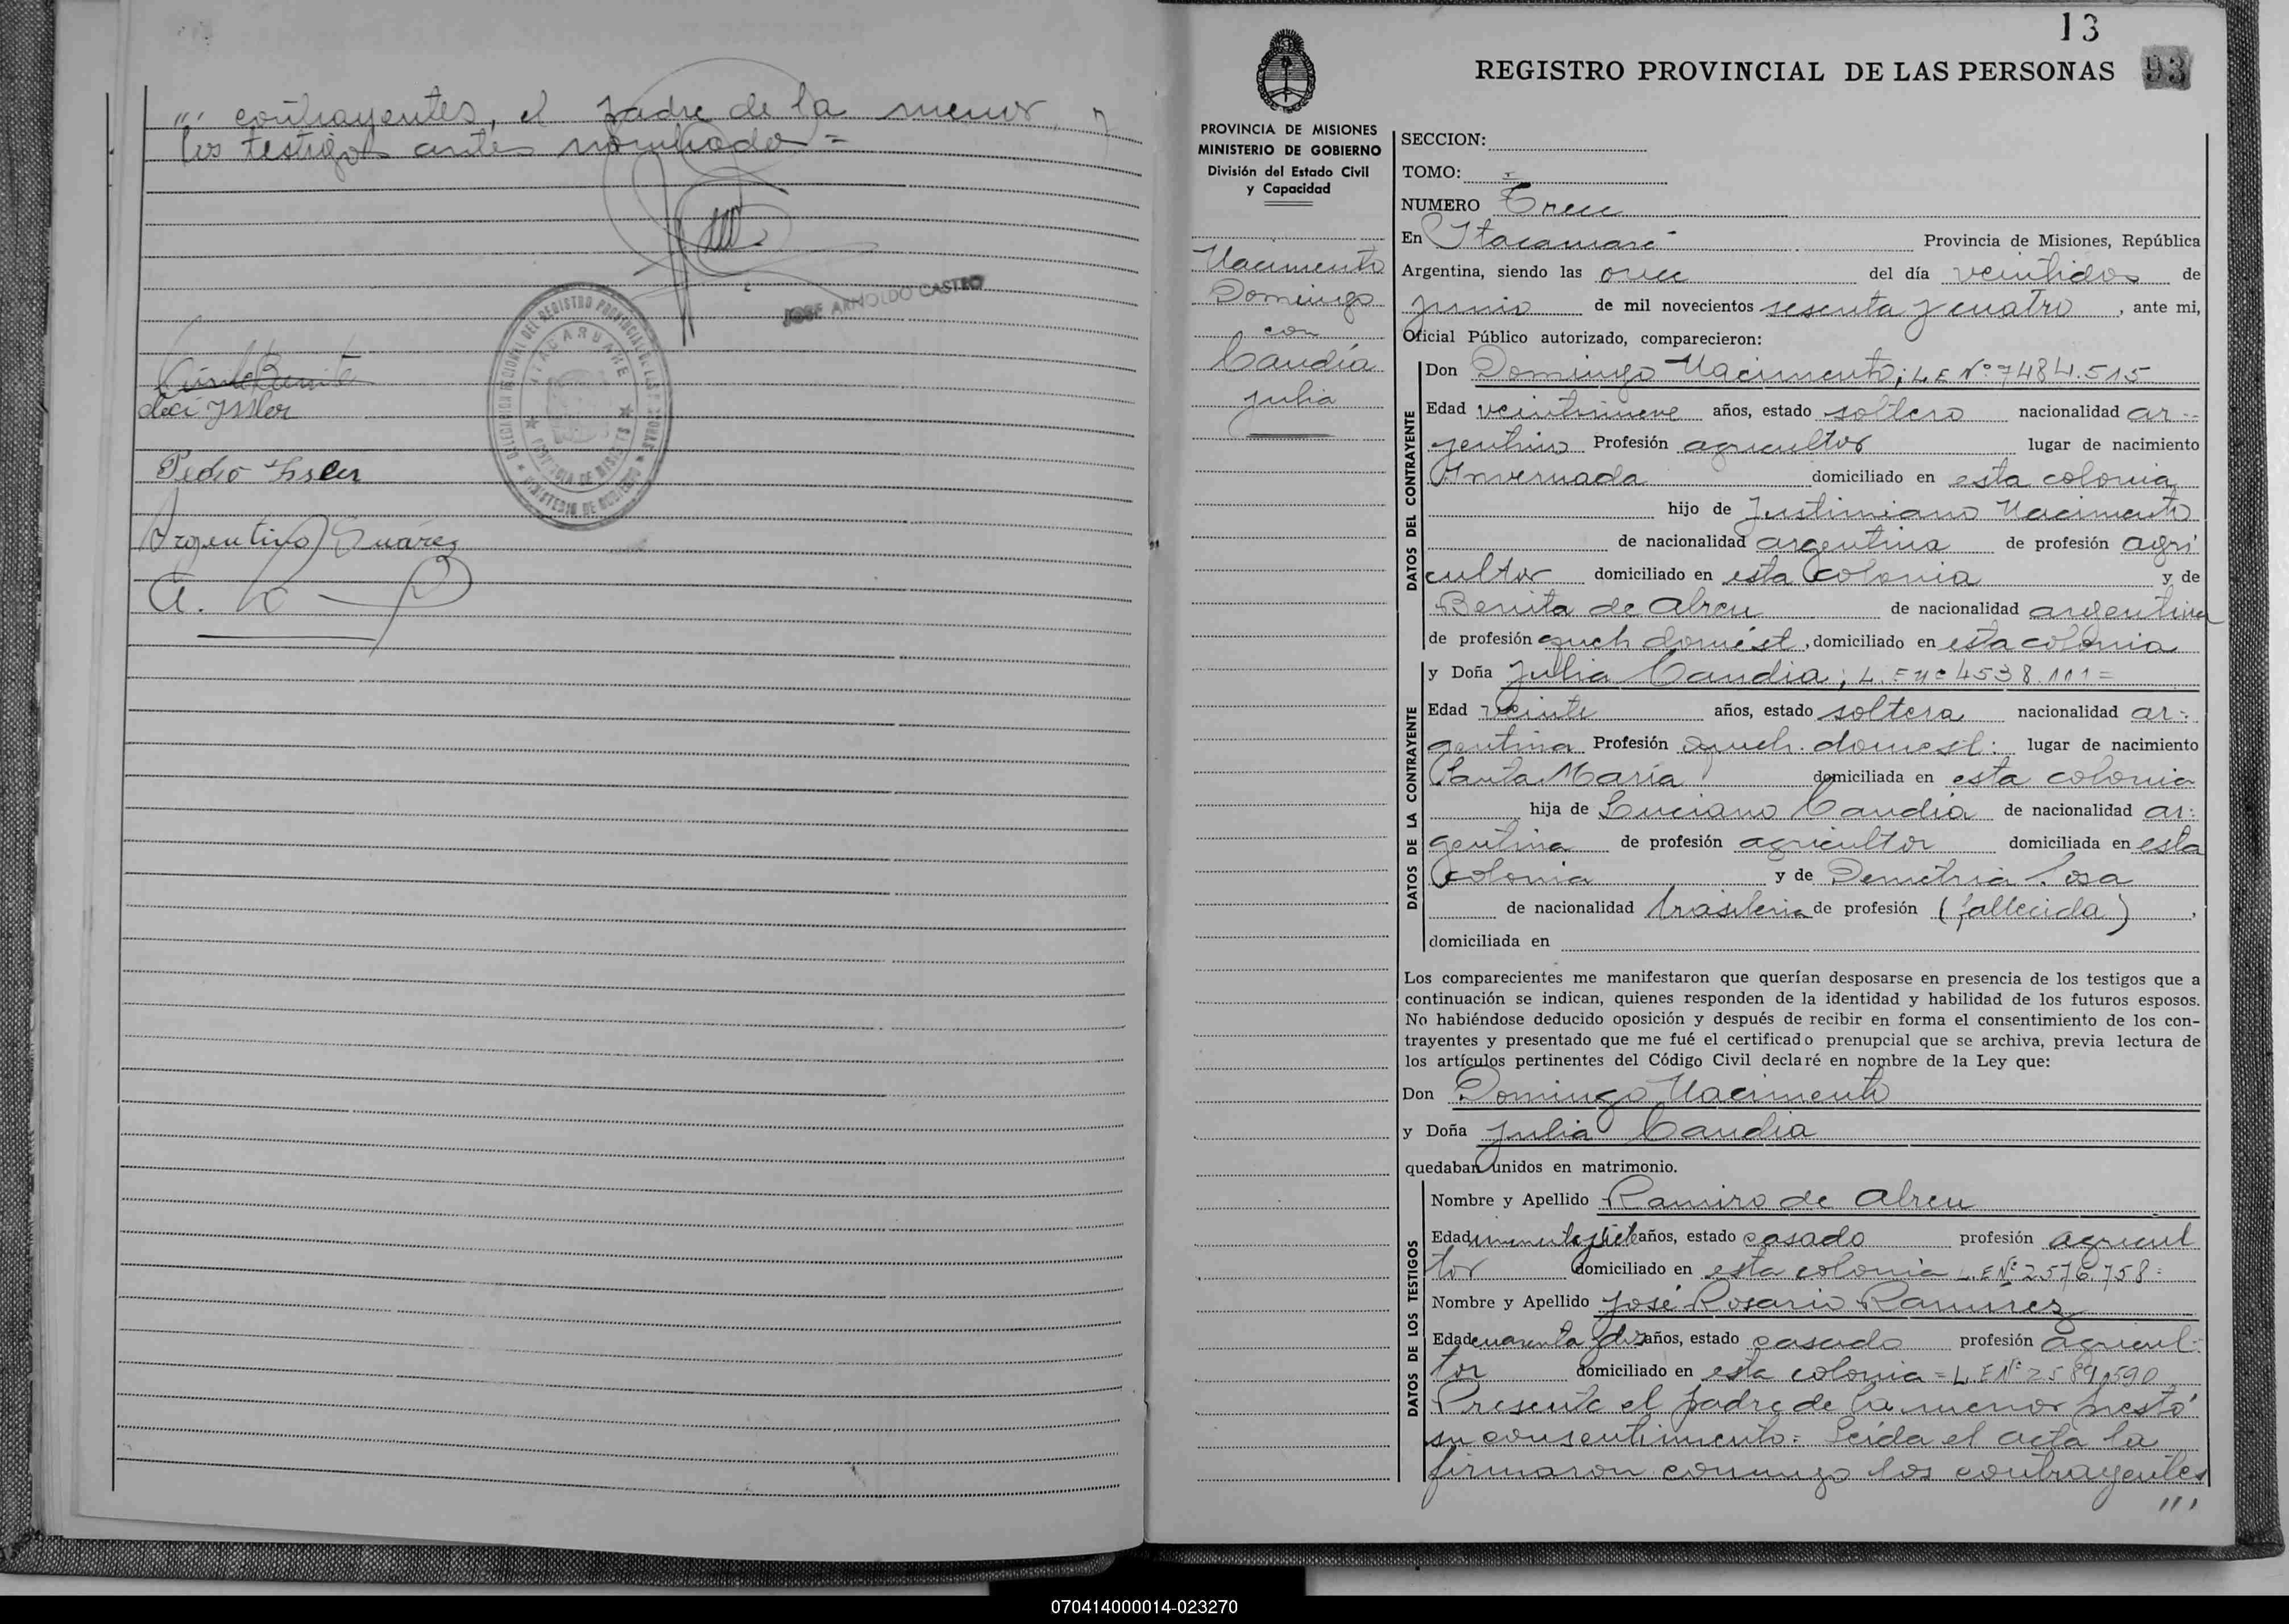 "' contrayentes, el padre de la menor, y
los testigos antes nombrados =
JOSE ARNOLDO CASTRO
DELEGACION REGIONAL DEL REGISTRO PROVINCIAL DE LAS PERSONAS
ITACARUARE
PROVINCIA DE MISIONES
MINISTERIO DE GOBIERNO
Pedro Issler
Argentino Suárez
13
REGISTRO PROVINCIAL DE LAS PERSONAS
93
PROVINCIA DE MISIONES
MINISTERIO DE GOBIERNO
División del Estado Civil
y Capacidad
Nacimento
Domingo
con
Candia
Julia
SECCION:
TOMO:
NUMERO Trece
En Itacaruaré Provincia de Misiones, República
Argentina, siendo las once del día veintidos de
junio de mil novecientos sesenta y cuatro, ante mi,
Oficial Público autorizado, comparecieron:
DATOS DEL CONTRAYENTE
Don Domingo Nacimento; L E Nº 7484.515
Edad veintinueve años, estado soltero nacionalidad ar-
gentino Profesión agricultor lugar de nacimiento
Invernada domiciliado en esta colonia
hijo de Justiniano Nacimento
de nacionalidad argentina de profesión agri
cultor domiciliado en esta colonia y de
Benita de Abreu de nacionalidad argentina
de profesión queh domést, domiciliado en esta colonia
DATOS DE LA CONTRAYENTE
y Doña Julia Candia; L. E nº 4538.111=
Edad veinte años, estado soltera nacionalidad ar-
gentina Profesión queh. domést: lugar de nacimiento
Santa María domiciliada en esta colonia
hija de Luciano Candia de nacionalidad ar:
gentina de profesión agricultor domiciliada en esta
colonia y de Demetria Sosa
de nacionalidad brasileria de profesión (fallecida),
domiciliada en
Los comparecientes me manifestaron que querían desposarse en presencia de los testigos que a
continuación se indican, quienes responden de la identidad y habilidad de los futuros esposos.
No habiéndose deducido oposición y después de recibir en forma el consentimiento de los con-
trayentes y presentado que me fué el certificado prenupcial que se archiva, previa lectura de
los artículos pertinentes del Código Civil declaré en nombre de la Ley que:
Don Domingo Nacimento
y Doña Julia Candia
quedaban unidos en matrimonio.
DATOS DE LOS TESTIGOS
Nombre y Apellido Ramiro de Abreu
Edad años, estado casado profesión agricul
tor domiciliado en esta colonia L. E Nº 2576.758=
Nombre y Apellido José Rosario Ramirez
Edad cuarenta y dos años, estado casado profesión agricul-
tor domiciliado en esta colonia = L. E Nº 2589.590
Presente el padre de la menor prestó
su consentimiento= Leída el acta la
firmaron conmigo los contrayentes
'''
070414000014-023270